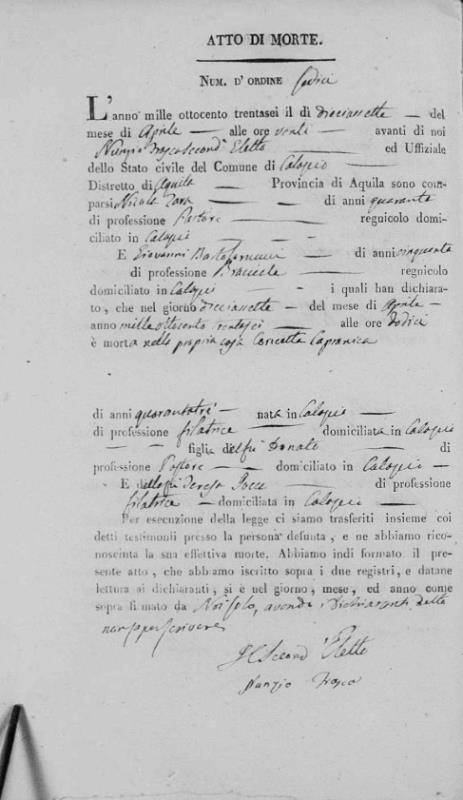 ATTO DI MORTE.
NUM. D' ORDINE
L'anno mille ottocento trentasei il dì dieciassette — del
mese di Aprile — alle ore venti — avanti di noi
Nunzio Second' Eletto — ed Uffiziale
dello Stato civile del Comune di —
Distretto di Aquila — Provincia di Aquila sono com-
parsi Nicola — di anni quaranta
di professione Pastore — regnicolo domi-
ciliato in —
E Giovanni — di anni cinquanta
di professione — regnicolo
domiciliato in — i quali han dichiara-
to, che nel giorno dieciassette — del mese di Aprile —
anno mille ottocento trentasei — alle ore dodici
è morta nella propria casa Concetta Capranica
di anni quarantatrè — nata in —
di professione filatrice — domiciliata in
— — figlia del fù Donato — di
professione Pastore — domiciliato in —
— E della fù Teresa — di professione
filatrice — domiciliata in —
Per esecuzione della legge ci siamo trasferiti insieme coi
detti testimonj presso la persona defunta, e ne abbiamo rico-
nosciuta la sua effettiva morte. Abbiamo indi formato il pre-
sente atto, che abbiamo iscritto sopra i due registri, e datane
lettura ai dichiaranti, si è nel giorno, mese, ed anno come
sopra firmato da Noi solo, avendo i dichiaranti detto
non saper scrivere
Il Second' Eletto
Nunzio